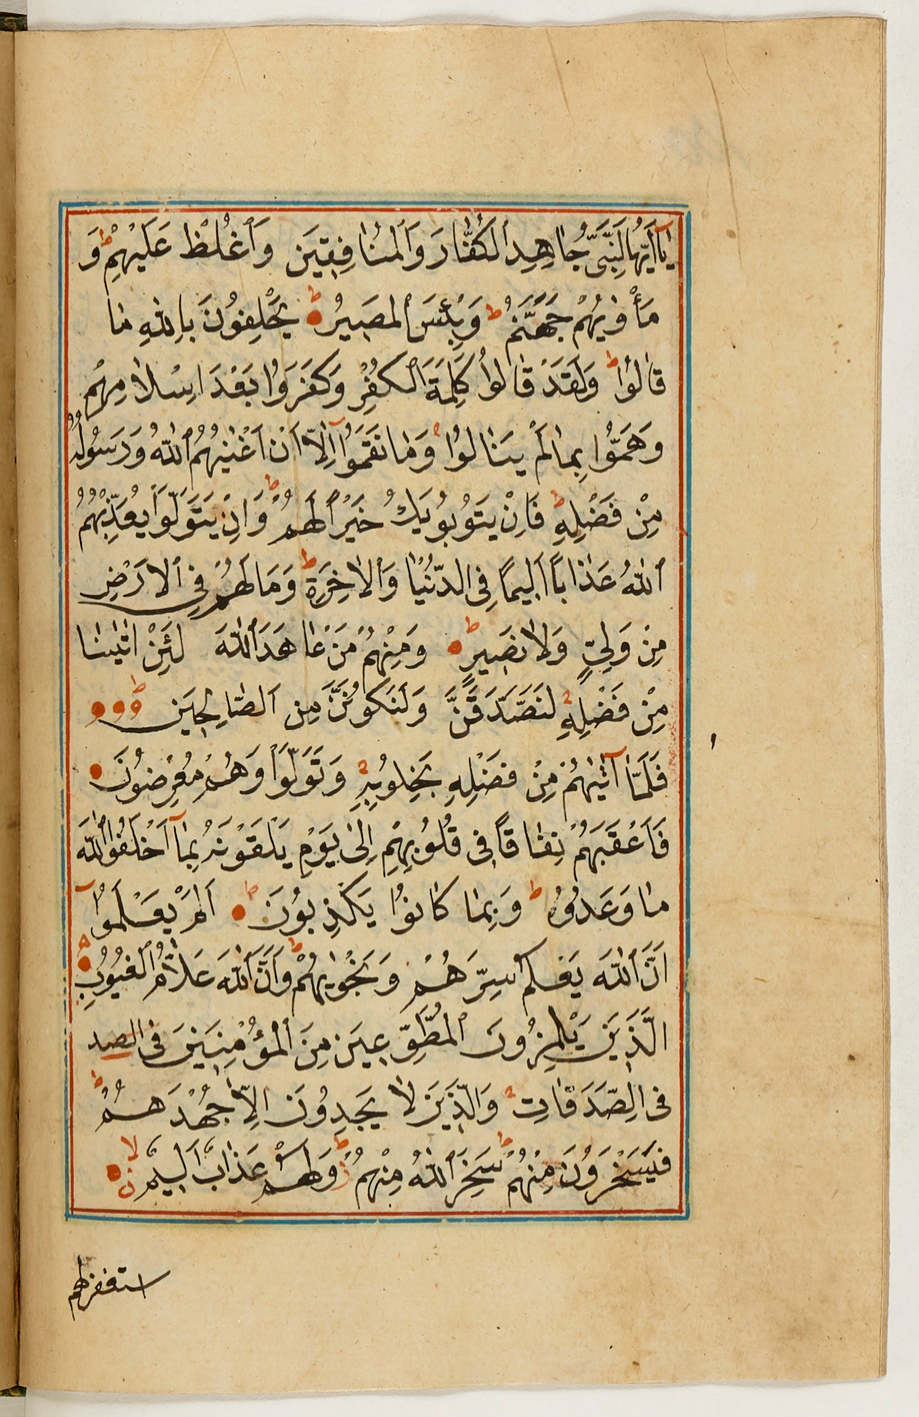 يَٰٓا اَيُّهَا النَّبِىُّ جَاهِدِ الْكُفَّارَ وَالْمُنَافِقِينَ وَاغْلُظْ عَلَيْهِمْ ط وَ
مَأْوٰيهُمْ جَهَنَّمُ ط وَبِئْسَ الْمَصِيرُ ط يَحْلِفُونَ بِاللّٰهِ مَا
قَالُوا ط وَلَقَدْ قَالُوا كَلِمَةَ الْكُفْرِ وَكَفَرَوُا بَعْدَ اِسْلَامِهِمْ
وَهَمُّوا بِمَا لَمْ يَنَالُوا وَمَا نَقَمُوا اِلَّا اَنْ اَغْنٰيهُمُ اللّٰهُ وَرَسُولُهُ
مِنْ فَضْلِهِ ط فَاِنْ يَتُوبُو يَكُ خَيْرًا لَهُمْ ط وَاِنْ يَتَوَلَّوْا يُعَذِّبْهُمُ
اللّٰهُ عَذَابًا اَلِيمًا فِى الدُّنْيَا وَالْاٰخِرَةِ ط وَمَا لَهُمْ فِى الْاَرْضِ
مِنْ وَلِيٍّ وَلَا نَصِيرٍ ط وَمِنْهُمْ مَنْ عَاهَدَ اللّٰهَ لَئِنْ اٰتٰينَا
مِنْ فَضْلِهِ لَنَصَّدَّقَنَّ وَلَنَكُونَنَّ مِنَ الصَّالِحِينَ
فَلَمَّا آتٰيهُمْ مِنْ فَضْلِهِ بَخِلوُبِهِ وَتَوَلَّوْا وَهُمْ مُعْرِضُونَ
فَاَعْقَبَهُمْ نِفَاقًا فِى قُلُوبِهِمْ اِلٰى يَوْمِ يَلْقَوْنَهُ بِمَآ اَخْلَفُوا اللّٰهَ
مَا وَعَدُوهُ ط وَبِمَا كَانُوا يَكْذِبُونَ ط اَلَمْ يَعْلَمُوا
اَنَّ اللّٰهَ يَعْلَمُ سِرَّهُمْ وَنَجْوٰيهُمْ ط وَاَنَّ اللّٰهَ عَلَّامُ الْغُيُوبِ
الَّذِينَ يَلْمِزُونَ الْمُطَّوِّعِينَ مِنَ الْمُؤْمِنِينَ فِى الصد
فِى الصَّدَقَاتِ وَالَّذِينَ لَا يَجِدُونَ اِلَّا جُهْدَهُمْ ط
فَيَسْخَرُونَ مِنْهُمْ ط سَخِرَ اللّٰهُ مِنْهُمْ ط وَلَهُمْ عَذَابٌ اَلِيمٌ لا
استغفرلهم